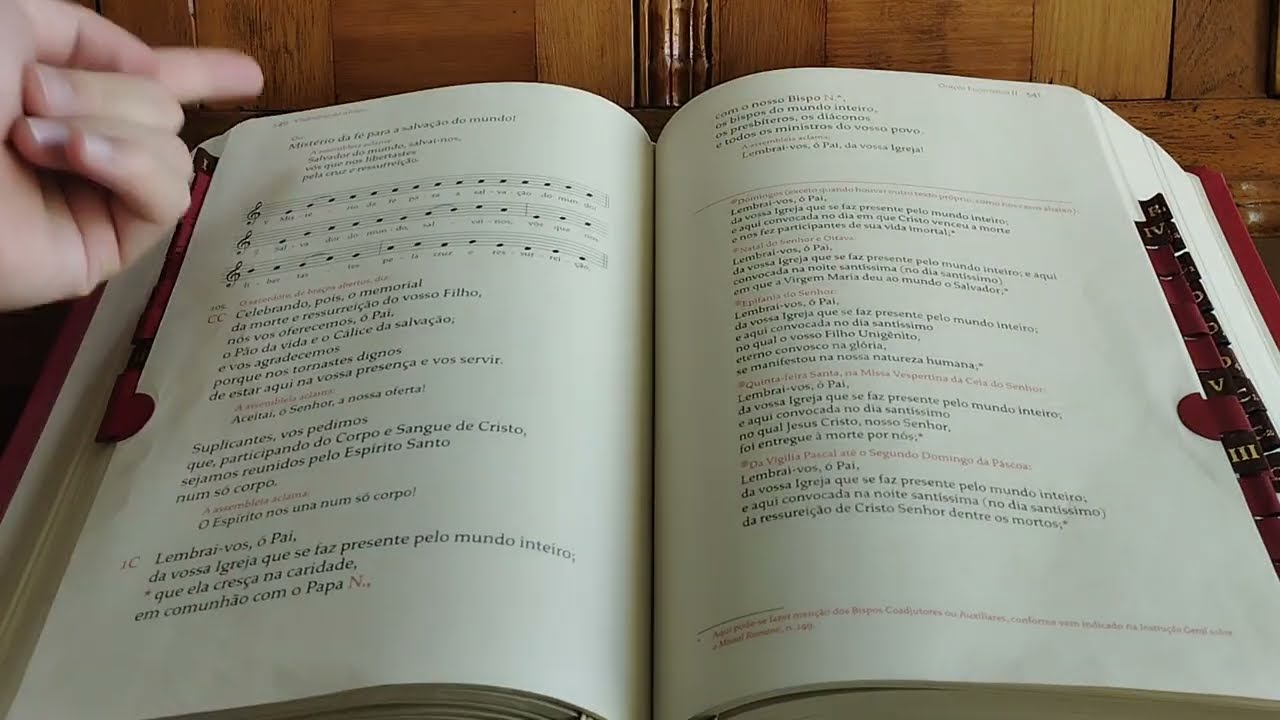 Ou:
Mistério da fé para a salvação do mundo!
A assembleia aclama:
Salvador do mundo, salvai-nos,
vós que nos libertastes
pela cruz e ressurreição.
Mis - té - rio da fé pa - ra a sal - va - ção do mun - do!
Sal - va - dor do mun - do, sal - vai - nos, vós que nos
li - ber - tas - tes pe - la cruz e res - sur - rei - ção.
105. O sacerdote, de braços abertos, diz:
CC Celebrando, pois, o memorial
da morte e ressurreição do vosso Filho,
nós vos oferecemos, ó Pai,
o Pão da vida e o Cálice da salvação;
e vos agradecemos
porque nos tornastes dignos
de estar aqui na vossa presença e vos servir.
A assembleia aclama:
Aceitai, ó Senhor, a nossa oferta!
Suplicantes, vos pedimos
que, participando do Corpo e Sangue de Cristo,
sejamos reunidos pelo Espírito Santo
num só corpo.
A assembleia aclama:
O Espírito nos una num só corpo!
1C Lembrai-vos, ó Pai,
da vossa Igreja que se faz presente pelo mundo inteiro;
* que ela cresça na caridade,
em comunhão com o Papa N.,
Oração Eucarística II 541
com o nosso Bispo N.*,
os bispos do mundo inteiro,
os presbíteros, os diáconos
e todos os ministros do vosso povo.
A assembleia aclama:
Lembrai-vos, ó Pai, da vossa Igreja!
*Domingos (exceto quando houver outro texto próprio, como nos casos abaixo):
Lembrai-vos, ó Pai,
da vossa Igreja que se faz presente pelo mundo inteiro;
e aqui convocada no dia em que Cristo venceu a morte
e nos fez participantes de sua vida imortal;*
*Natal do Senhor e Oitava:
Lembrai-vos, ó Pai,
da vossa Igreja que se faz presente pelo mundo inteiro; e aqui
convocada na noite santíssima (no dia santíssimo)
em que a Virgem Maria deu ao mundo o Salvador;*
*Epifania do Senhor:
Lembrai-vos, ó Pai,
da vossa Igreja que se faz presente pelo mundo inteiro;
e aqui convocada no dia santíssimo
no qual o vosso Filho Unigênito,
eterno convosco na glória,
se manifestou na nossa natureza humana;*
*Quinta-feira Santa, na Missa Vespertina da Ceia do Senhor:
Lembrai-vos, ó Pai,
da vossa Igreja que se faz presente pelo mundo inteiro;
e aqui convocada no dia santíssimo
no qual Jesus Cristo, nosso Senhor,
foi entregue à morte por nós;*
*Da Vigília Pascal até o Segundo Domingo da Páscoa:
Lembrai-vos, ó Pai,
da vossa Igreja que se faz presente pelo mundo inteiro;
e aqui convocada na noite santíssima (no dia santíssimo)
da ressureição de Cristo Senhor dentre os mortos;*
* Aqui pode-se fazer menção dos Bispos Coadjutores ou Auxiliares, conforme vem indicado na Instrução Geral sobre
o Missal Romano, n. 149.
IV
V
III